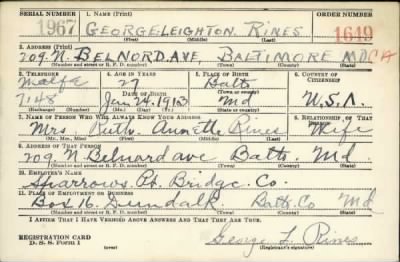 SERIAL NUMBER 1. NAME (Print) ORDER NUMBER
1967 GEORGE LEIGHTON. RINES 1649
(First) (Middle) (Last)
2. ADDRESS (Print)
209 N. BELNORD AVE, BALTIMORE MD
(Number and street or R. F. D. number) (Town) (County) (State)
3. TELEPHONE 4. AGE IN YEARS 5. PLACE OF BIRTH 6. COUNTRY OF CITIZENSHIP
27 Balto
DATE OF BIRTH (Town or county)
7148 Jan 24. 1913 Md U.S.A.
(Exchange) (Number) (Mo.) (Day) (Yr.) (State or country)
7. NAME OF PERSON WHO WILL ALWAYS KNOW YOUR ADDRESS 8. RELATIONSHIP OF THAT PERSON
Mrs Ruth. Annette Rines Wife
(Mr., Mrs., Miss) (First) (Middle) (Last)
9. ADDRESS OF THAT PERSON
209 N Belnord ave Balto. Md.
(Number and street or R. F. D. number) (Town) (County) (State)
10. EMPLOYER'S NAME
Sparrows Pt. Bridge. Co.
11. PLACE OF EMPLOYMENT OR BUSINESS
Box 16. Dundalk Balto. Co Md
(Number and street or R. F. D. number) (Town) (County) (State)
I AFFIRM THAT I HAVE VERIFIED ABOVE ANSWERS AND THAT THEY ARE TRUE.
REGISTRATION CARD
D. S. S. Form 1 (over) George L. Rines
(Registrant's signature)